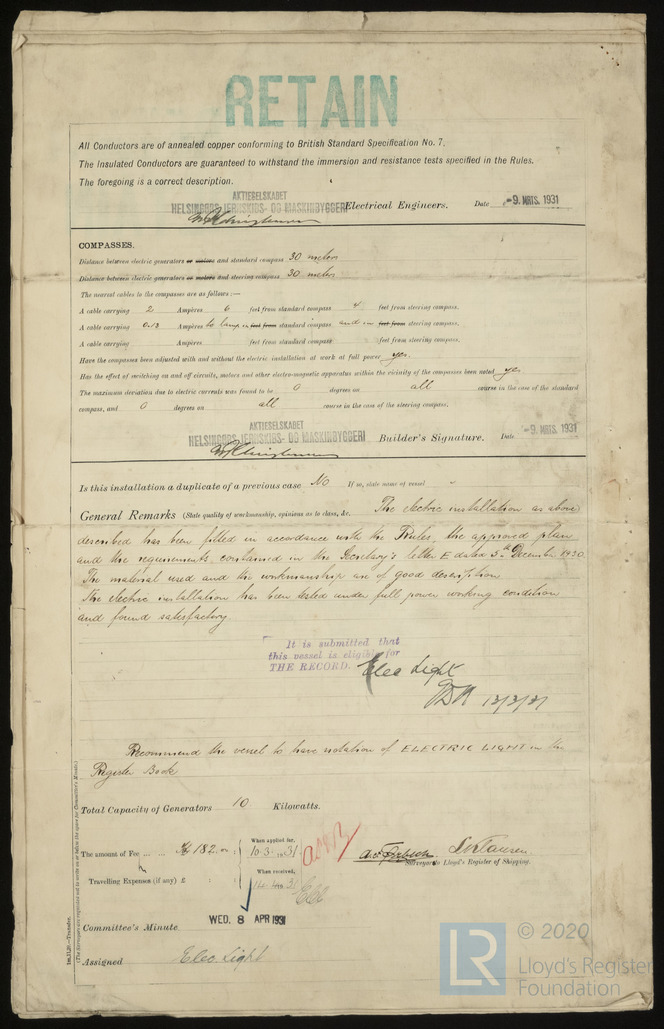 RETAIN
All Conductors are of annealed copper conforming to British Standard Specification No. 7.
The Insulated Conductors are guaranteed to withstand the immersion and resistance tests specified in the Rules.
The foregoing is a correct description.
AKTIESELSKABET
HELSINGØRS JERNSKIBS- OG MASKINBYGGERI Electrical Engineers. Date -9. MRTS. 1931
COMPASSES.
Distance between electric generators or motors and standard compass 30 meters
Distance between electric generators or motors and steering compass 30 meters
The nearest cables to the compasses are as follows:—
A cable carrying 2 Ampères 6 feet from standard compass 4 feet from steering compass.
A cable carrying 0.13 Ampères to lamp in feet from standard compass and in feet from steering compass.
A cable carrying Ampères feet from standard compass feet from steering compass.
Have the compasses been adjusted with and without the electric installation at work at full power yes.
Has the effect of switching on and off circuits, motors and other electro-magnetic apparatus within the vicinity of the compasses been noted yes
The maximum deviation due to electric currents was found to be 0 degrees on all course in the case of the standard
compass, and 0 degrees on all course in the case of the steering compass.
AKTIESELSKABET
HELSINGØRS JERNSKIBS- OG MASKINBYGGERI Builder's Signature. Date -9. MRTS. 1931
Is this installation a duplicate of a previous case No If so, state name of vessel "
General Remarks (State quality of workmanship, opinions as to class, &c. The electric installation as above
described has been fitted in accordance with the Rules, the approved plan
and the requirements contained in the Secretary's letter E dated 5th December 1930.
The material used and the workmanship are of good description
The electric installation has been tested under full power working condition
and found satisfactory.
It is submitted that
this vessel is eligible for
THE RECORD. Elec Light
13/3/31
Recommend the vessel to have notation of ELECTRIC LIGHT in the
Register Book
Total Capacity of Generators 10 Kilowatts.
The amount of Fee ... ... Kr 182.00 When applied for, 10.3.1931
Travelling Expenses (if any) £ : : When received, 31
Surveyor to Lloyd's Register of Shipping.
WED. 8 APR 1931
Committee's Minute
Assigned Elec. Light
1m.11.26.—Transfer.
(The Surveyors are requested not to write on or below the space for Committee's Minute.)
LR
© 2020
Lloyd's Register
Foundation